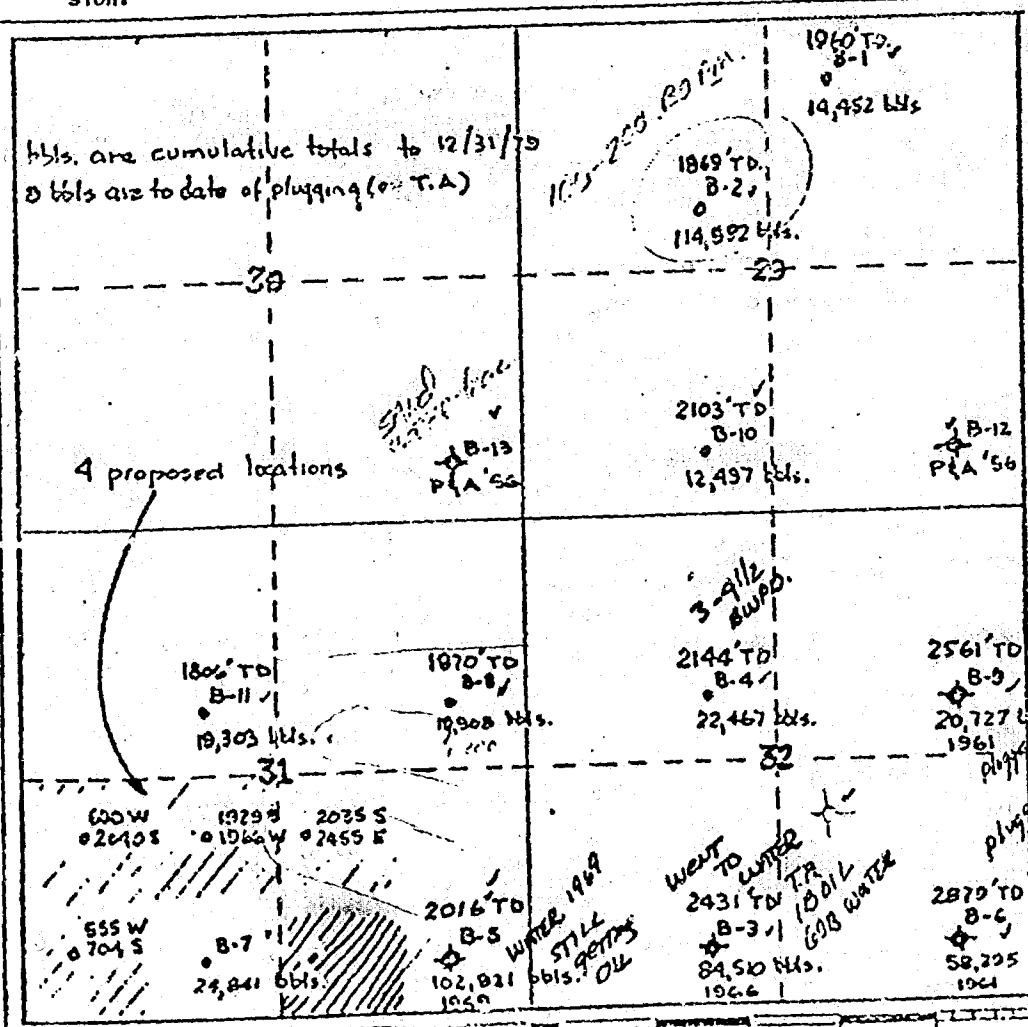 bbls. are cumulative totals to 12/31/79
bbls are to date of plugging (or T.A)
1960' TD
B-1
14,452 bbls
1869' TD
B-2
114,592 bbls.
30
29
2103' TD
B-10
12,497 bbls.
B-13
P&A '56
B-12
P&A '56
4 proposed locations
3-4 1/2
BWPD.
1806' TD
B-11
19,303 bbls.
1870' TD
B-8
19,908 bbls.
2144' TD
B-4
22,467 bbls.
2561' TD
B-9
20,727
1961
31
32
600 W
1929 S
2035 S
1966 W
2455 E
555 W
704 S
B-7
24,861 bbls.
2016' TD
B-5
102,821 bbls.
WATER 1969
STILL
GETTING
OIL
WENT
TO
WATER
2431' TD
B-3
84,510 bbls.
1966
TA
18 OIL
WATER
2879' TD
B-6
58,295
1961